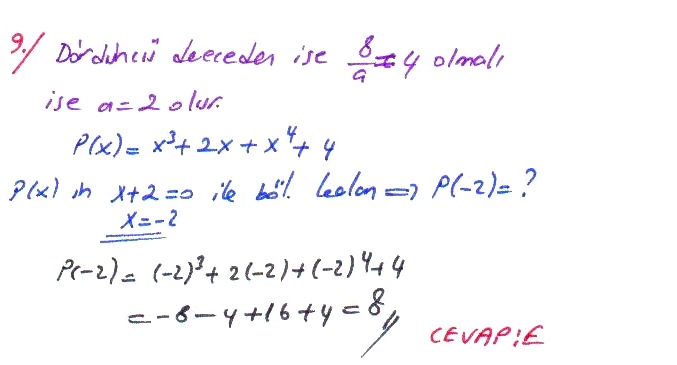 9./ Dördüncü dereceden ise 8/a = 4 olmalı
ise a = 2 olur.
P(x) = x³ + 2x + x⁴ + 4
P(x) in x+2=0 ile böl. kalan ⇒ P(-2) = ?
x = -2
P(-2) = (-2)³ + 2(-2) + (-2)⁴ + 4
= -8 - 4 + 16 + 4 = 8 //
CEVAP: E